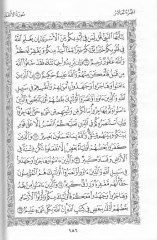 الجزء العاشر
سورة الأنفال
يَٰٓأَيُّهَا ٱلنَّبِىُّ قُل لِّمَن فِىٓ أَيْدِيكُم مِّنَ ٱلْأَسْرَىٰٓ إِن يَعْلَمِ ٱللَّهُ
فِى قُلُوبِكُمْ خَيْرًا يُؤْتِكُمْ خَيْرًا مِّمَّآ أُخِذَ مِنكُمْ وَيَغْفِرْ لَكُمْ
وَٱللَّهُ غَفُورٌ رَّحِيمٌ ٧٠ وَإِن يُرِيدُوا۟ خِيَانَتَكَ فَقَدْ خَانُوا۟ ٱللَّهَ
مِن قَبْلُ فَأَمْكَنَ مِنْهُمْ وَٱللَّهُ عَلِيمٌ حَكِيمٌ ٧١ إِنَّ ٱلَّذِينَ
ءَامَنُوا۟ وَهَاجَرُوا۟ وَجَٰهَدُوا۟ بِأَمْوَٰلِهِمْ وَأَنفُسِهِمْ
فِى سَبِيلِ ٱللَّهِ وَٱلَّذِينَ ءَاوَوا۟ وَّنَصَرُوٓا۟ أُو۟لَٰٓئِكَ بَعْضُهُمْ أَوْلِيَآءُ
بَعْضٍ وَٱلَّذِينَ ءَامَنُوا۟ وَلَمْ يُهَاجِرُوا۟ مَا لَكُم مِّن وَلَٰيَتِهِم مِّن شَىْءٍ
حَتَّىٰ يُهَاجِرُوا۟ وَإِنِ ٱسْتَنصَرُوكُمْ فِى ٱلدِّينِ فَعَلَيْكُمُ ٱلنَّصْرُ
إِلَّا عَلَىٰ قَوْمٍۭ بَيْنَكُمْ وَبَيْنَهُم مِّيثَٰقٌ وَٱللَّهُ بِمَا تَعْمَلُونَ بَصِيرٌ ٧٢
وَٱلَّذِينَ كَفَرُوا۟ بَعْضُهُمْ أَوْلِيَآءُ بَعْضٍ إِلَّا تَفْعَلُوهُ تَكُن فِتْنَةٌ
فِى ٱلْأَرْضِ وَفَسَادٌ كَبِيرٌ ٧٣ وَٱلَّذِينَ ءَامَنُوا۟ وَهَاجَرُوا۟ وَجَٰهَدُوا۟
فِى سَبِيلِ ٱللَّهِ وَٱلَّذِينَ ءَاوَوا۟ وَّنَصَرُوٓا۟ أُو۟لَٰٓئِكَ هُمُ ٱلْمُؤْمِنُونَ
حَقًّا لَّهُم مَّغْفِرَةٌ وَرِزْقٌ كَرِيمٌ ٧٤ وَٱلَّذِينَ ءَامَنُوا۟ مِنۢ بَعْدُ
وَهَاجَرُوا۟ وَجَٰهَدُوا۟ مَعَكُمْ فَأُو۟لَٰٓئِكَ مِنكُمْ وَأُو۟لُوا۟ ٱلْأَرْحَامِ
بَعْضُهُمْ أَوْلَىٰ بِبَعْضٍ فِى كِتَٰبِ ٱللَّهِ إِنَّ ٱللَّهَ بِكُلِّ شَىْءٍ عَلِيمٌۢ ٧٥
١٨٦